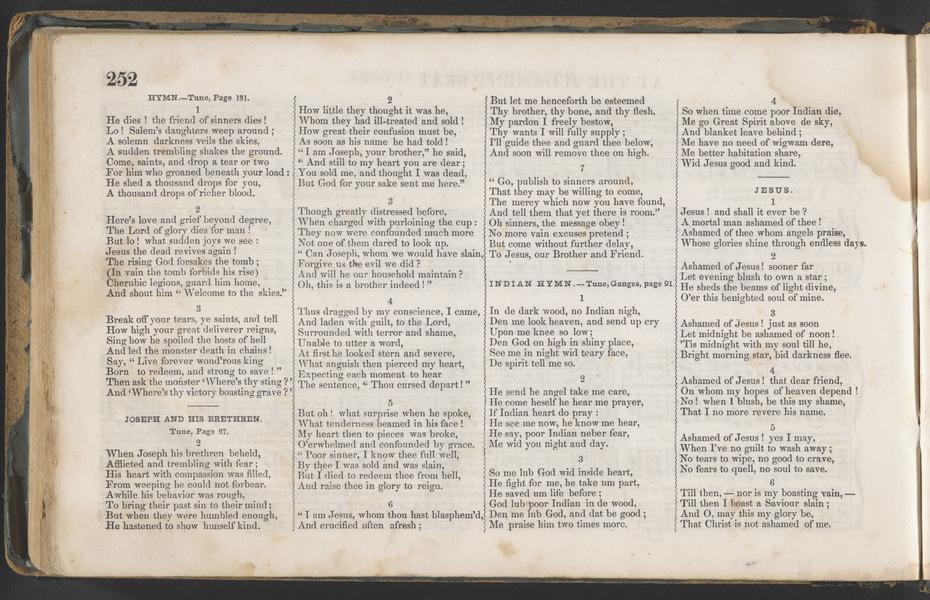 252
HYMN.—Tune, Page 191.
1
He dies! the friend of sinners dies!
Lo! Salem's daughters weep around;
A solemn darkness veils the skies,
A sudden trembling shakes the ground.
Come, saints, and drop a tear or two
For him who groaned beneath your load:
He shed a thousand drops for you,
A thousand drops of richer blood.
2
Here's love and grief beyond degree,
The Lord of glory dies for man!
But lo! what sudden joys we see:
Jesus the dead revives again!
The rising God forsakes the tomb;
(In vain the tomb forbids his rise)
Cherubic legions, guard him home,
And shout him "Welcome to the skies."
3
Break off your tears, ye saints, and tell
How high your great deliverer reigns,
Sing how he spoiled the hosts of hell
And led the monster death in chains!
Say, "Live forever wond'rous king
Born to redeem, and strong to save!"
Then ask the monster 'Where's thy sting?'
And 'Where's thy victory boasting grave?'
JOSEPH AND HIS BRETHREN.
Tune, Page 97.
2
When Joseph his brethren beheld,
Afflicted and trembling with fear;
His heart with compassion was filled,
From weeping he could not forbear.
Awhile his behavior was rough,
To bring their past sin to their mind:
But when they were humbled enough,
He hastened to show himself kind.
2
How little they thought it was he,
Whom they had ill-treated and sold!
How great their confusion must be,
As soon as his name he had told!
"I am Joseph, your brother," he said,
"And still to my heart you are dear;
You sold me, and thought I was dead,
But God for your sake sent me here."
3
Though greatly distressed before,
When charged with purloining the cup:
They now were confounded much more
Not one of them dared to look up.
"Can Joseph, whom we would have slain,
Forgive us the evil we did?
And will he our household maintain?
Oh, this is a brother indeed!"
4
Thus dragged by my conscience, I came,
And laden with guilt, to the Lord,
Surrounded with terror and shame,
Unable to utter a word,
At first he looked stern and severe,
What anguish then pierced my heart,
Expecting each moment to hear
The sentence, "Thou cursed depart!"
5
But oh! what surprise when he spoke,
What tenderness beamed in his face!
My heart then to pieces was broke,
O'erwhelmed and confounded by grace.
"Poor sinner, I know thee full well,
By thee I was sold and was slain,
But I died to redeem thee from hell,
And raise thee in glory to reign.
6
"I am Jesus, whom thou hast blasphem'd,
And crucified often afresh;
But let me henceforth be esteemed
Thy brother, thy bone, and thy flesh.
My pardon I freely bestow,
Thy wants I will fully supply;
I'll guide thee and guard thee below,
And soon will remove thee on high.
7
"Go, publish to sinners around,
That they may be willing to come,
The mercy which now you have found,
And tell them that yet there is room."
Oh sinners, the message obey!
No more vain excuses pretend;
But come without further delay,
To Jesus, our Brother and Friend.
INDIAN HYMN.—Tune, Ganges, page 91.
1
In de dark wood, no Indian nigh,
Den me look heaven, and send up cry
Upon me knee so low;
Den God on high in shiny place,
See me in night wid teary face,
De spirit tell me so.
2
He send he angel take me care,
He come heself he hear me prayer,
If Indian heart do pray:
He see me now, he know me hear,
He say, poor Indian neber fear,
Me wid you night and day.
3
So me lub God wid inside heart,
He fight for me, he take um part,
He saved um life before;
God lub poor Indian in de wood,
Den me lub God, and dat be good;
Me praise him two times more.
4
So when time come poor Indian die,
Me go Great Spirit above de sky,
And blanket leave behind;
Me have no need of wigwam dere,
Me better habitation share,
Wid Jesus good and kind.
JESUS.
1
Jesus! and shall it ever be?
A mortal man ashamed of thee!
Ashamed of thee whom angels praise,
Whose glories shine through endless days.
2
Ashamed of Jesus! sooner far
Let evening blush to own a star;
He sheds the beams of light divine,
O'er this benighted soul of mine.
3
Ashamed of Jesus! just as soon
Let midnight be ashamed of noon!
'Tis midnight with my soul till he,
Bright morning star, bid darkness flee.
4
Ashamed of Jesus! that dear friend,
On whom my hopes of heaven depend!
No! when I blush, be this my shame,
That I no more revere his name.
5
Ashamed of Jesus! yes I may,
When I've no guilt to wash away;
No tears to wipe, no good to crave,
No fears to quell, no soul to save.
6
Till then,—nor is my boasting vain,—
Till then I boast a Saviour slain;
And O, may this my glory be,
That Christ is not ashamed of me.